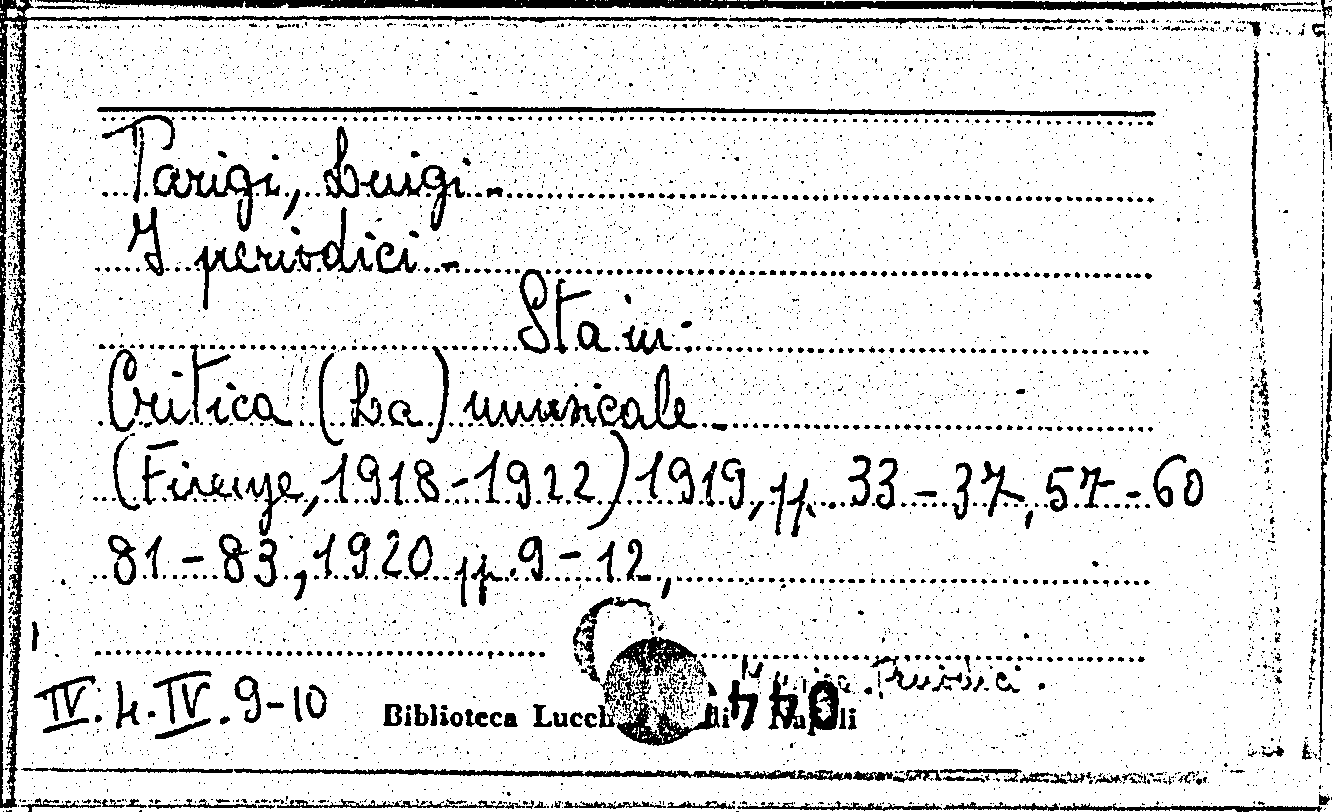 Parigi, Luigi -
I periodici -
Sta in:
Critica (La) musicale -
(Firenze, 1918-1922) 1919, pp. 33-37, 57-60
81-83, 1920 pp. 9-12,
Periodici.
IV. 4. IV. 9-10
Biblioteca di Napoli
044